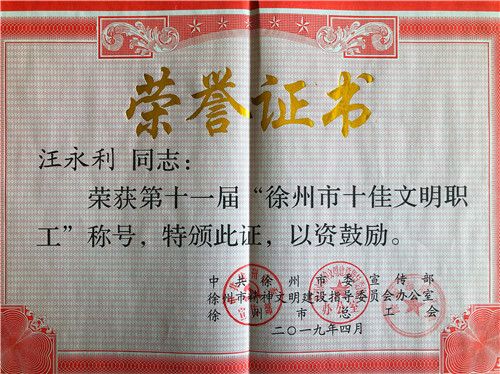 荣誉证书
汪永利 同志：
荣获第十一届“徐州市十佳文明职
工”称号，特颁此证，以资鼓励。
中共徐州市委宣传部
徐州市精神文明建设指导委员会办公室
徐州市总工会
二〇一九年四月